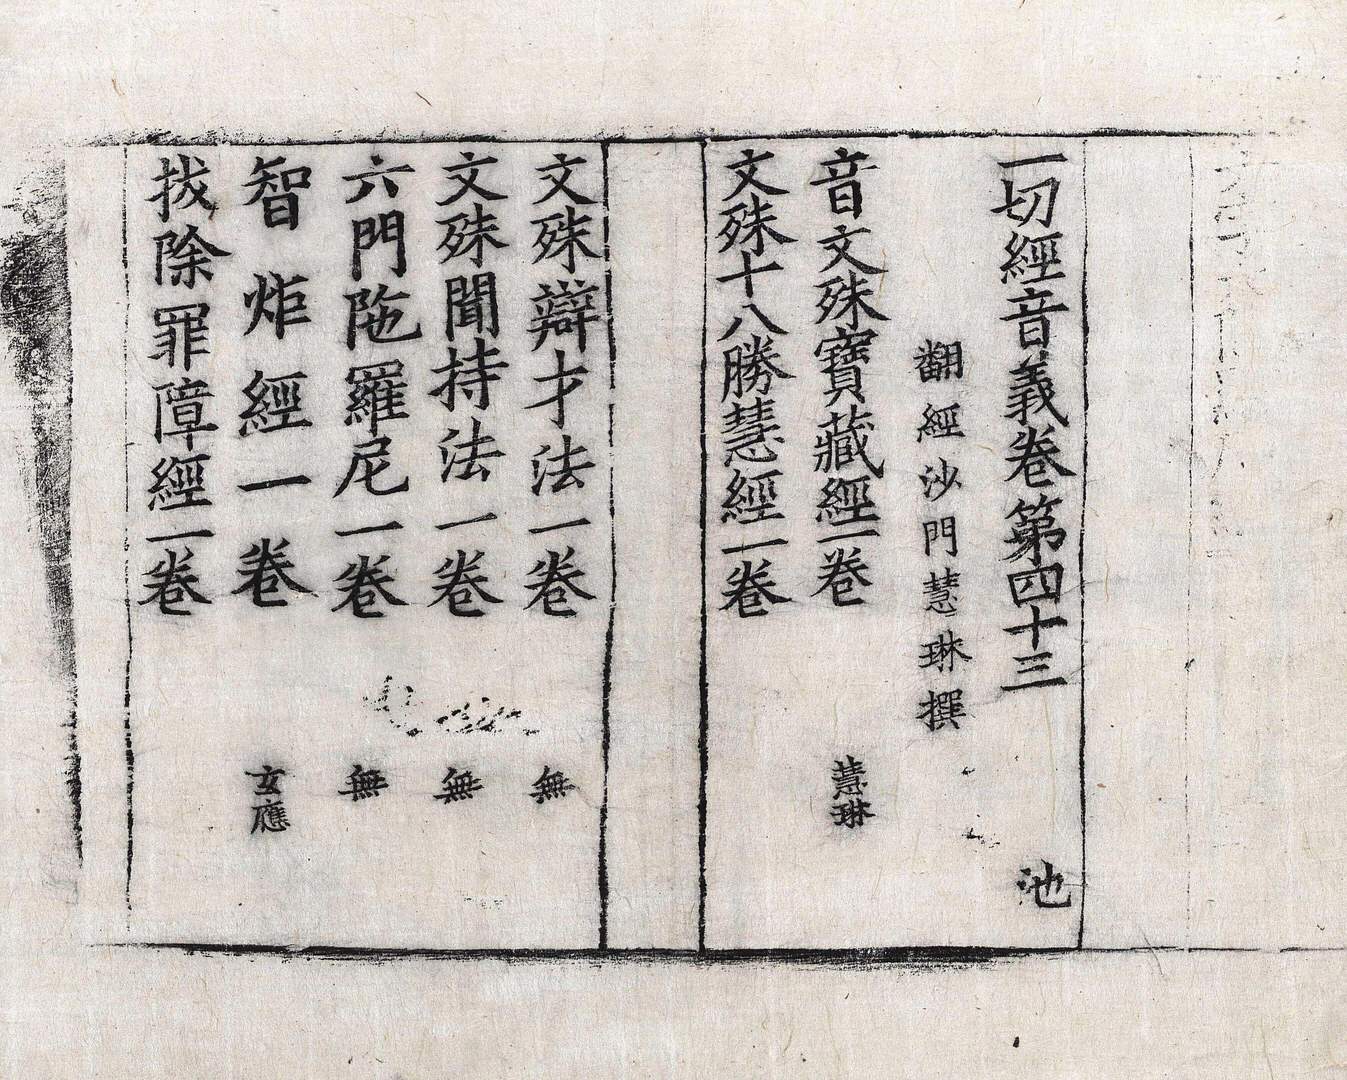 一切經音義卷第四十三 池
翻經沙門慧琳撰
音文殊寶藏經一卷 慧琳
文殊十八勝慧經一卷
文殊辯才法一卷 無
文殊聞持法一卷 無
六門陁羅尼一卷 無
智炬經一卷 玄應
拔除罪障經一卷